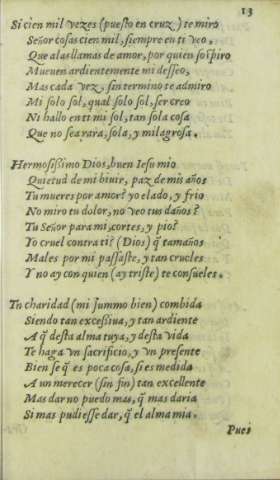 13
Si cien mil vezes (puesto en cruz) te miro
Señor cosas cien mil, siempre en ti veo,
Que alas llamas de amor, por quien sospiro
Mueuen ardientemente mi desseo,
Mas cada vez, sin termino te admiro
Mi solo sol, qual solo sol, ser creo
Ni hallo en ti mi sol, tan sola cosa
Que no sea rara, sola, y milagrosa.
Hermosissimo Dios, buen Iesu mio
Quietud de mi biuir, paz de mis años
Tu mueres por amor? yo elado, y frio
No miro tu dolor, no veo tus daños?
Tu Señor para mi, cortes, y pio?
Yo cruel contra ti? (Dios) q̃ tamaños
Males por mi passaste, y tan crueles
Y no ay con quien (ay triste) te consueles.
Tu charidad (mi summo bien) combida
Siendo tan excessiua, y tan ardiente
A q̃ desta alma tuya, y desta vida
Te haga vn sacrificio, y vn presente
Bien se q̃ es poca cosa, si es medida
A vn merecer (sin fin) tan excellente
Mas dar no puedo mas, q̃ mas daria
Si mas pudiesse dar, q̃ el alma mia.
Pues